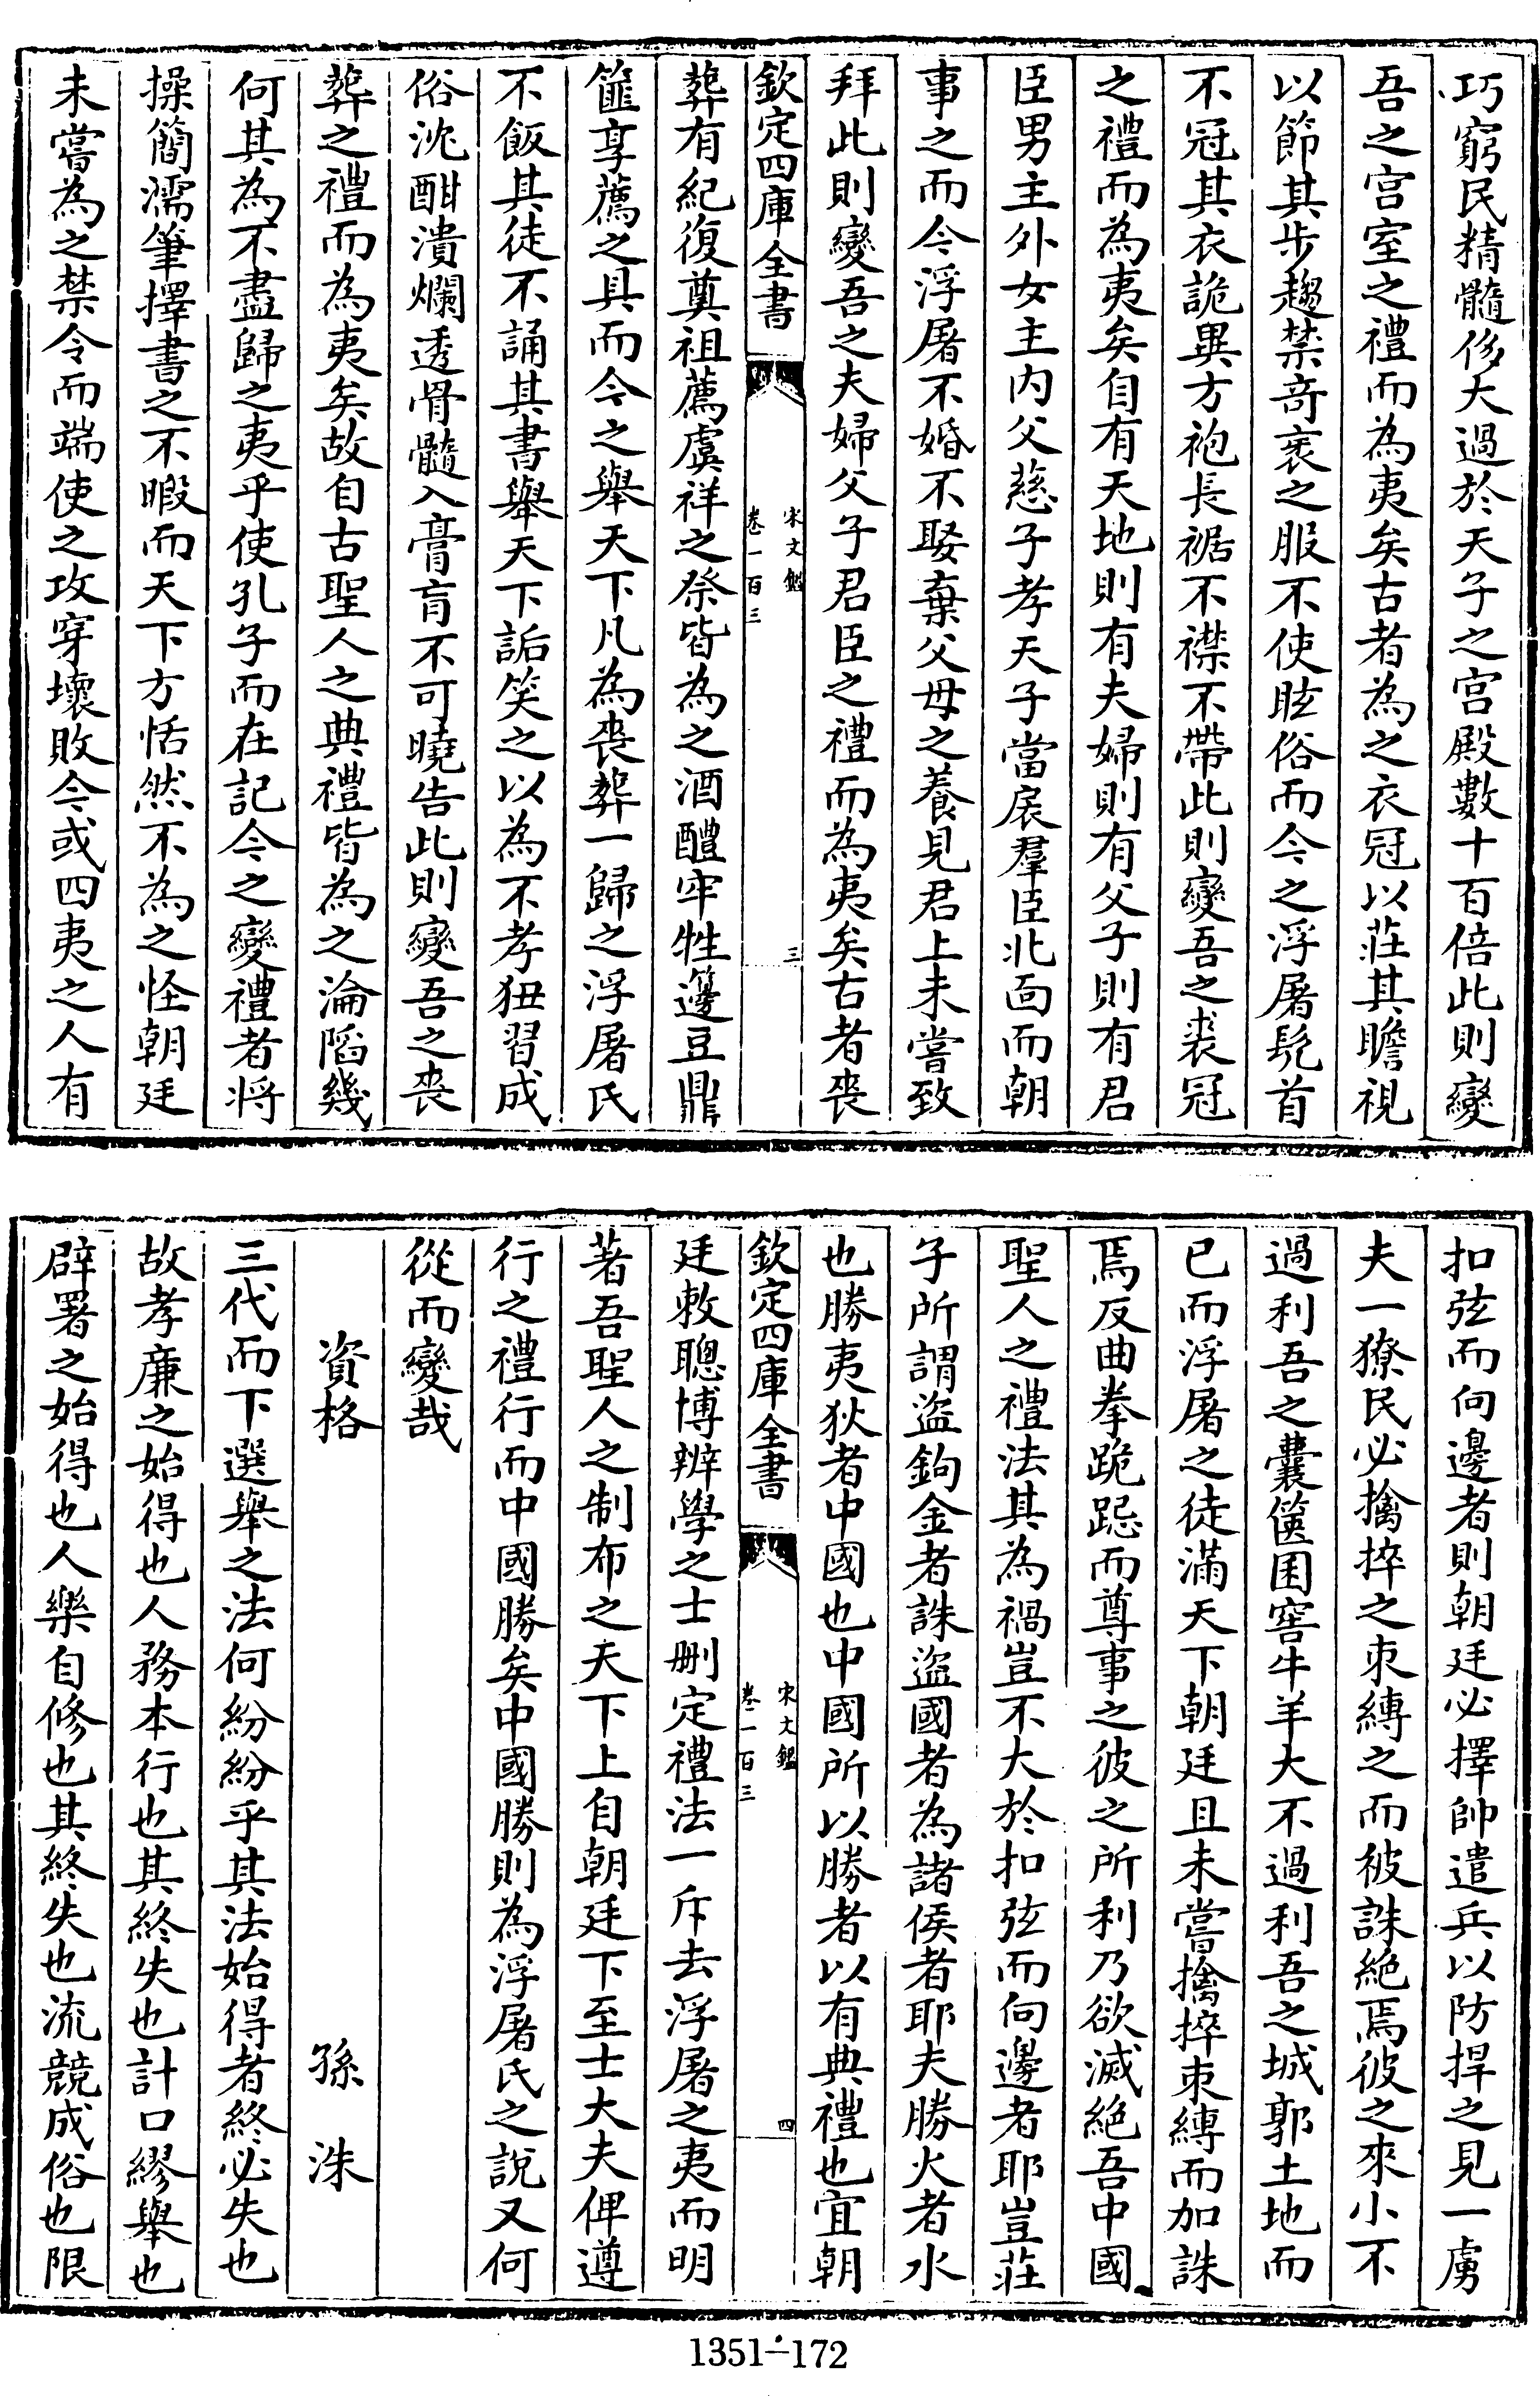 巧窮民精髓侈大過於天子之宫殿數十百倍此則變
吾之宫室之禮而為夷矣古者為之衣冠以莊其瞻視
以節其步趨禁竒衺之服不使眩俗而今之浮屠髡首
不冠其衣詭異方袍長裾不襟不帶此則變吾之裘冠
之禮而為夷矣自有天地則有夫婦則有父子則有君
臣男主外女主内父慈子孝天子當扆羣臣北面而朝
事之而今浮屠不婚不娶棄父母之養見君上未嘗致
拜此則變吾之夫婦父子君臣之禮而為夷矣古者喪
欽定四庫全書
宋文鑑
卷一百三
三
葬有紀復奠祖薦虞祥之祭皆為之酒醴牢牲籩豆鼎
簠享薦之具而今之舉天下凡為喪葬一歸之浮屠氏
不飯其徒不誦其書舉天下詬笑之以為不孝狃習成
俗沈酣潰爛透骨髓入膏肓不可曉告此則變吾之喪
葬之禮而為夷矣故自古聖人之典禮皆為之淪陷幾
何其為不盡歸之夷乎使孔子而在記今之變禮者將
操簡濡筆擇書之不暇而天下方恬然不為之怪朝廷
未嘗為之禁令而端使之攻穿壞敗今或四夷之人有
扣弦而向邊者則朝廷必擇帥遣兵以防捍之見一虜
夫一獠民必擒捽之束縛之而彼誅絶焉彼之來小不
過利吾之囊篋囷窖牛羊大不過利吾之城郭土地而
已而浮屠之徒滿天下朝廷且未嘗擒捽束縛而加誅
焉反曲拳跪跽而尊事之彼之所利乃欲滅絶吾中國
聖人之禮法其為禍豈不大於扣弦而向邊者耶豈莊
子所謂盜鉤金者誅盜國者為諸侯者耶夫勝火者水
也勝夷狄者中國也中國所以勝者以有典禮也宜朝
欽定四庫全書
宋文鑑
卷一百三
四
廷敕聰博辨學之士刪定禮法一斥去浮屠之夷而明
著吾聖人之制布之天下上自朝廷下至士大夫俾遵
行之禮行而中國勝矣中國勝則為浮屠氏之說又何
從而變哉
資格
孫洙
三代而下選舉之法何紛紛乎其法始得者終必失也
故孝廉之始得也人務本行也其終失也計口繆舉也
辟署之始得也人樂自修也其終失也流競成俗也限
1351-172